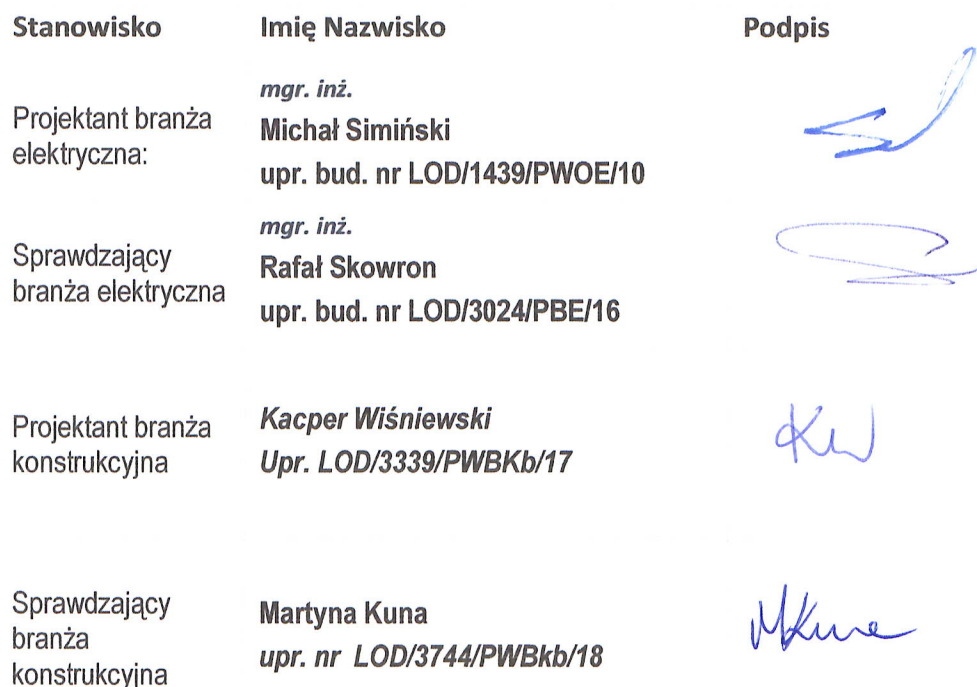 Stanowisko Imię Nazwisko Podpis
mgr. inż.
Projektant branża
elektryczna:
Michał Simiński
upr. bud. nr LOD/1439/PWOE/10
mgr. inż.
Sprawdzający
branża elektryczna
Rafał Skowron
upr. bud. nr LOD/3024/PBE/16
Projektant branża
konstrukcyjna
Kacper Wiśniewski
Upr. LOD/3339/PWBKb/17
KW
Sprawdzający
branża
konstrukcyjna
Martyna Kuna
upr. nr LOD/3744/PWBkb/18
MKuna